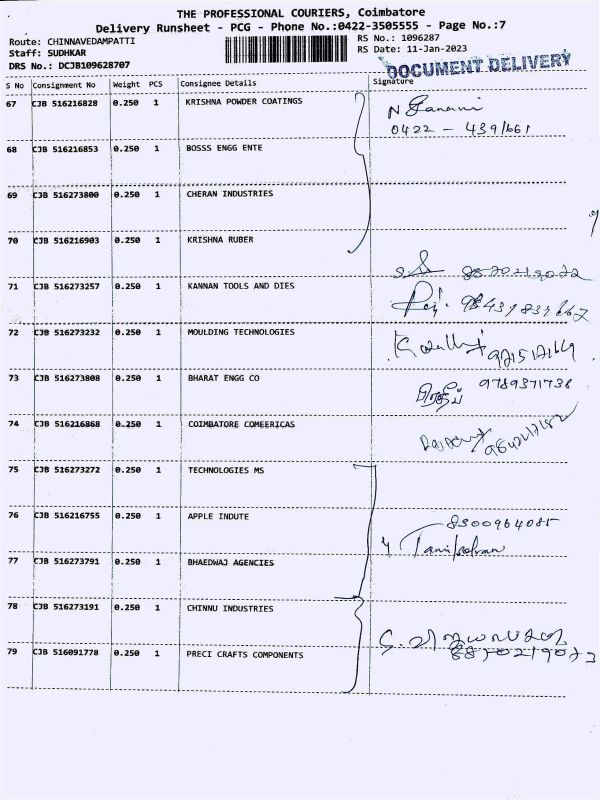 THE PROFESSIONAL COURIERS, Coimbatore
Delivery Runsheet - PCG - Phone No.:0422-3505555 - Page No.:7
Route: CHINNAVEDAMPATTI
Staff: SUDHKAR
DRS No.: DCJB109628707
RS No.: 1096287
RS Date: 11-Jan-2023
DOCUMENT DELIVERY
S No Consignment No Weight PCS Consignee Details Signature
67 CJB 516216828 0.250 1 KRISHNA POWDER COATINGS
0422 - 4391661
68 CJB 516216853 0.250 1 BOSSS ENGG ENTE
69 CJB 516273800 0.250 1 CHERAN INDUSTRIES
70 CJB 516216903 0.250 1 KRISHNA RUBER
71 CJB 516273257 0.250 1 KANNAN TOOLS AND DIES
72 CJB 516273232 0.250 1 MOULDING TECHNOLOGIES
73 CJB 516273808 0.250 1 BHARAT ENGG CO
9789371738
74 CJB 516216868 0.250 1 COIMBATORE COMEERICAS
75 CJB 516273272 0.250 1 TECHNOLOGIES MS
76 CJB 516216755 0.250 1 APPLE INDUTE
8300964085
77 CJB 516273791 0.250 1 BHAEDWAJ AGENCIES
78 CJB 516273191 0.250 1 CHINNU INDUSTRIES
79 CJB 516091778 0.250 1 PRECI CRAFTS COMPONENTS